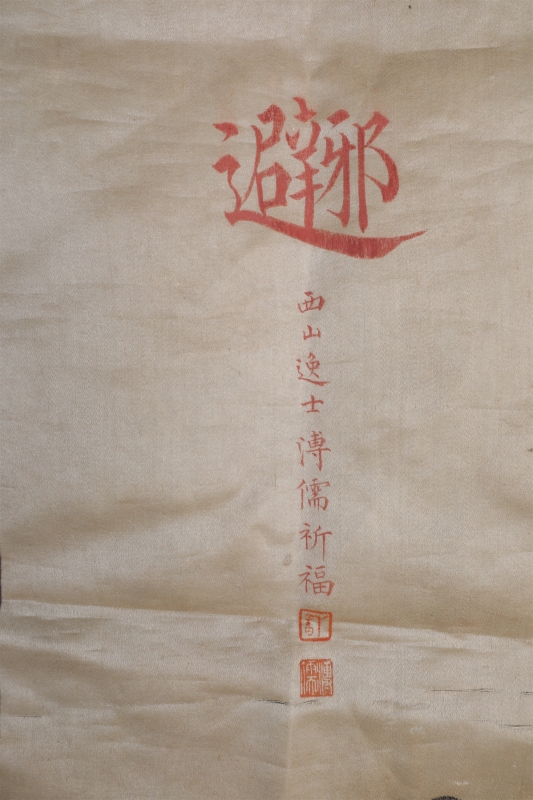 避邪
西山逸士溥儒祈福
溥儒